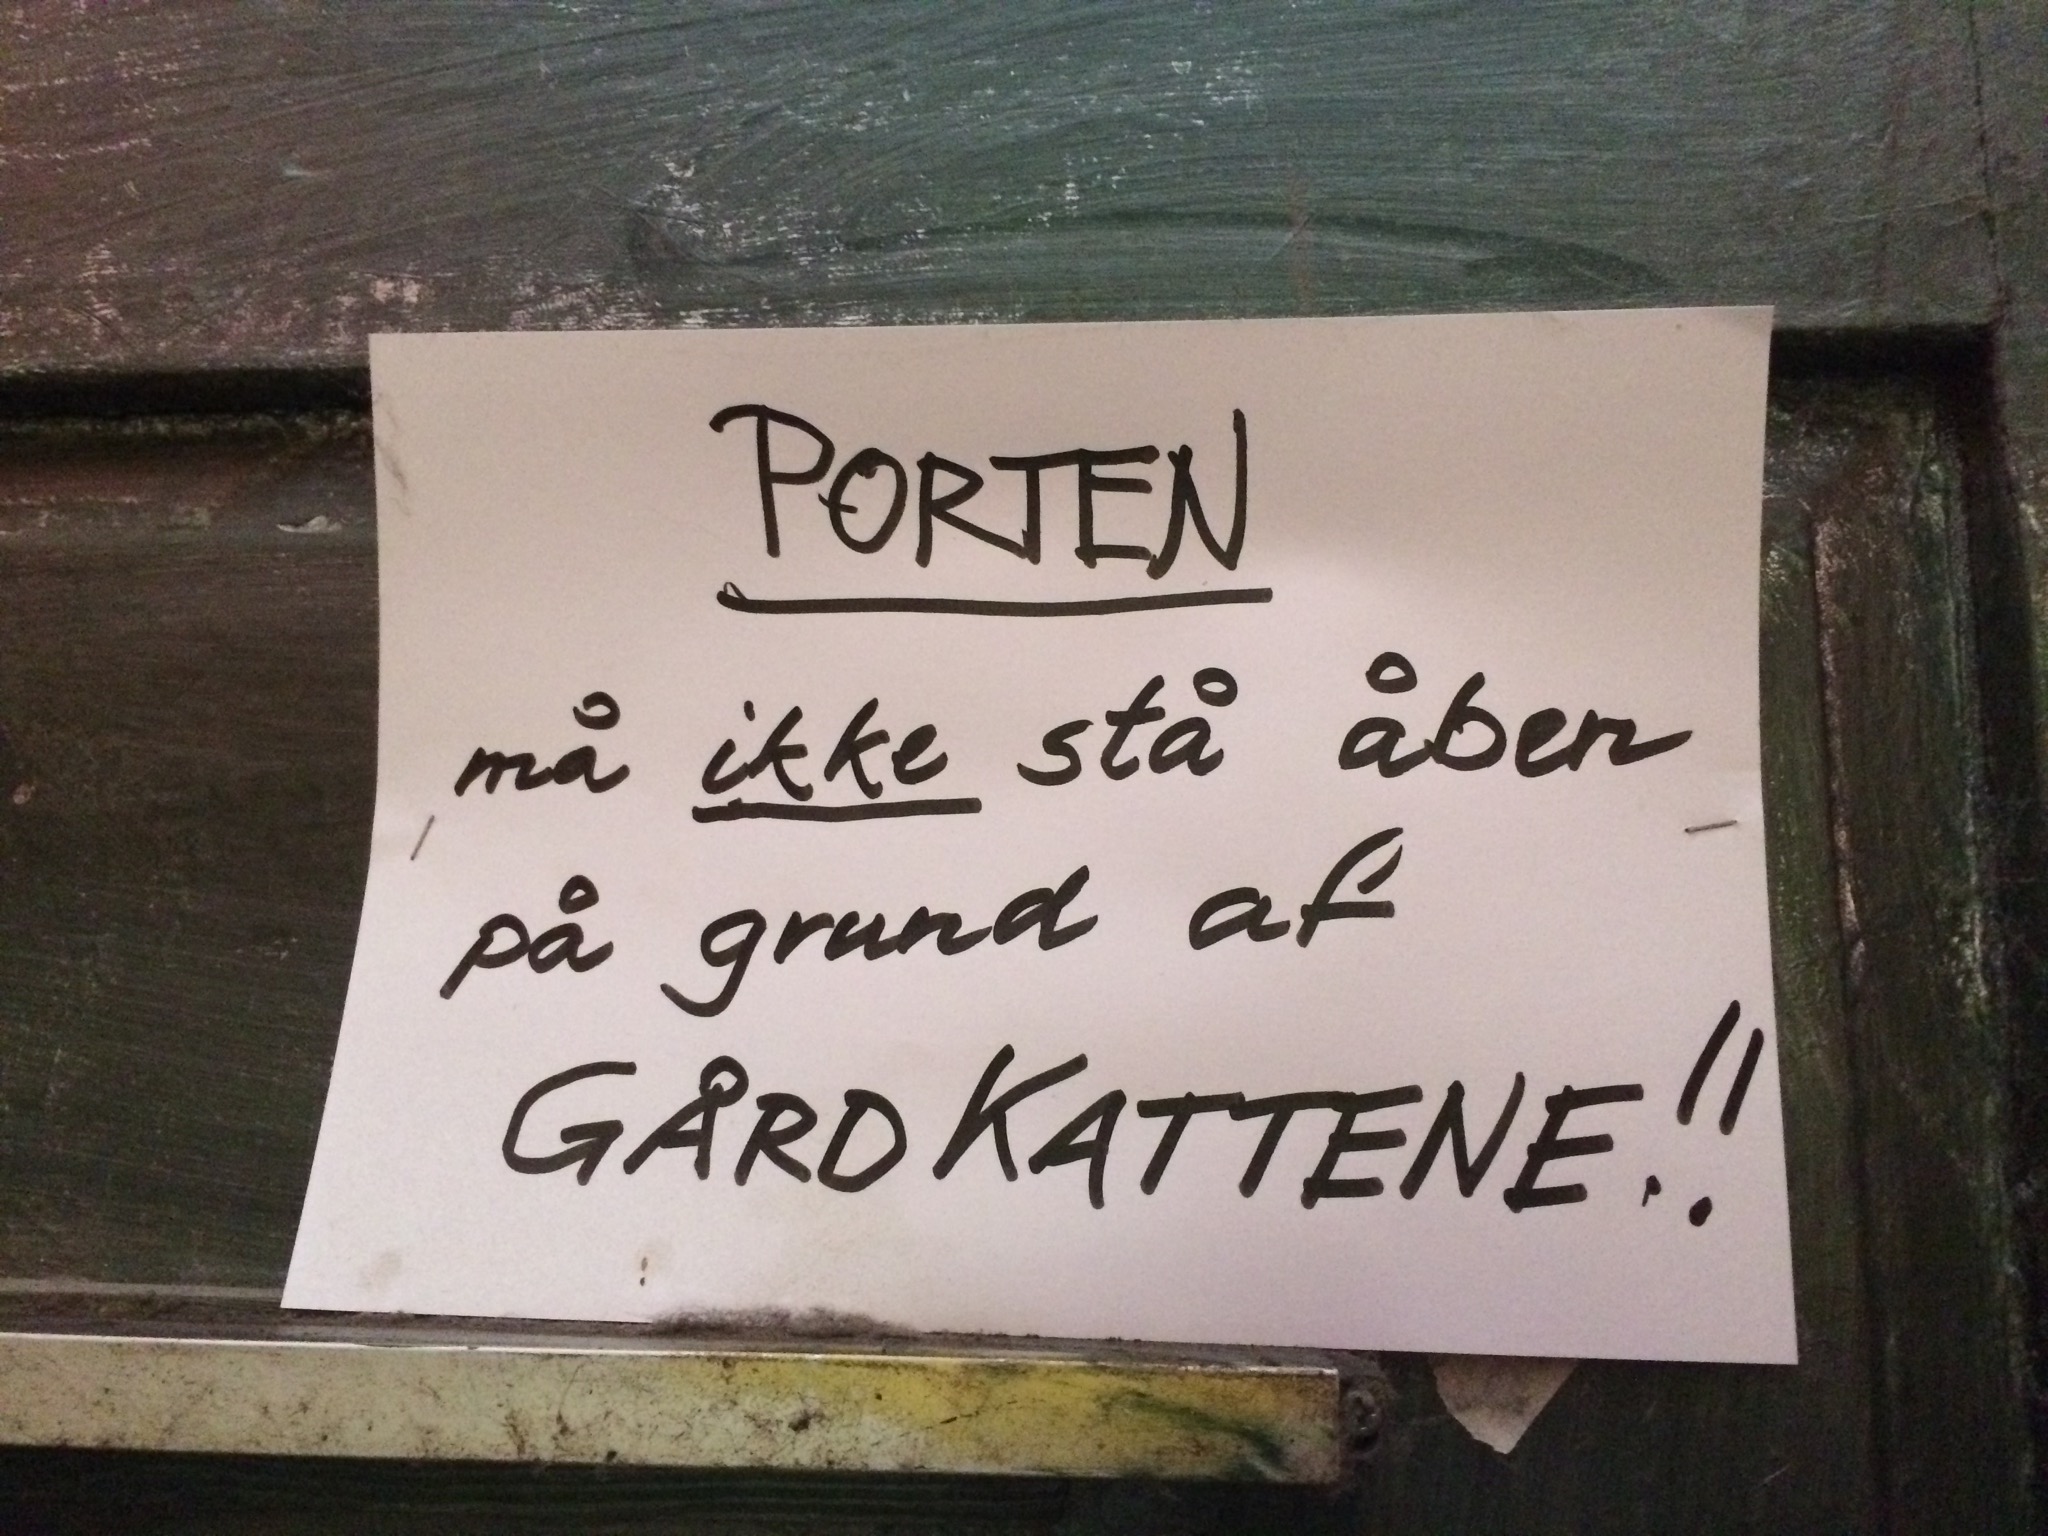 PORTEN
må ikke stå åben
på grund af
GÅRDKATTENE!!